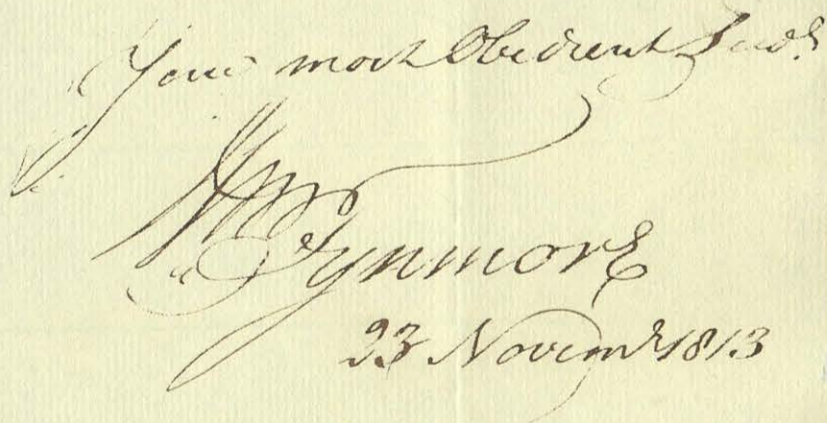 Your most Obedient Servt
Wm Fynmore
23 Novemr 1813